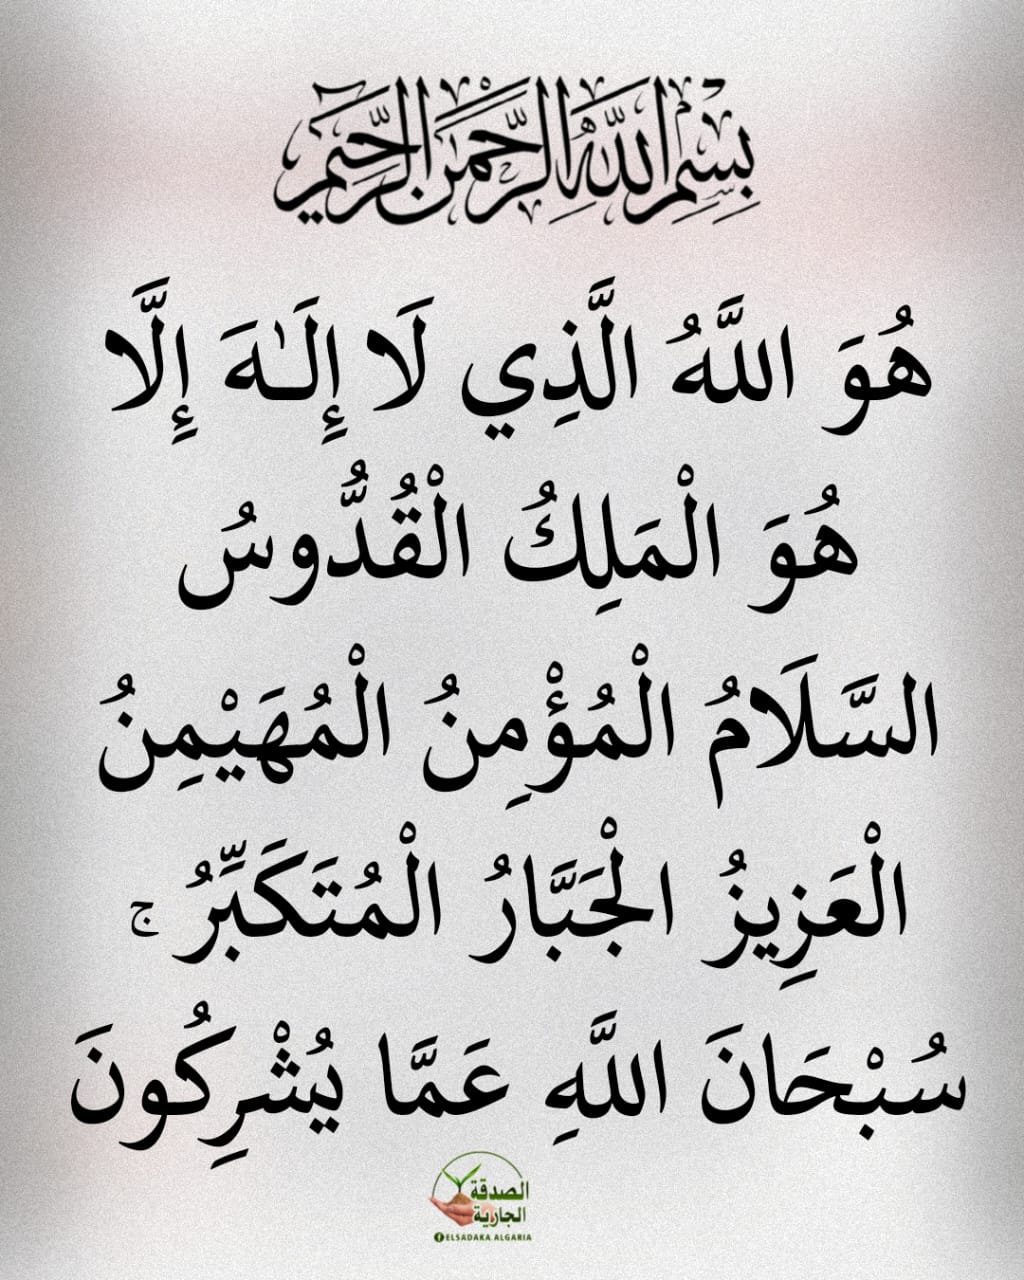 بِسْمِ اللَّهِ الرَّحْمَنِ الرَّحِيمِ
هُوَ اللَّهُ الَّذِي لَا إِلَـٰهَ إِلَّا
هُوَ الْمَلِكُ الْقُدُّوسُ
السَّلَامُ الْمُؤْمِنُ الْمُهَيْمِنُ
الْعَزِيزُ الْجَبَّارُ الْمُتَكَبِّرُ ۚ
سُبْحَانَ اللَّهِ عَمَّا يُشْرِكُونَ
الصدقة
الجارية
ELSADAKA ALGARIA